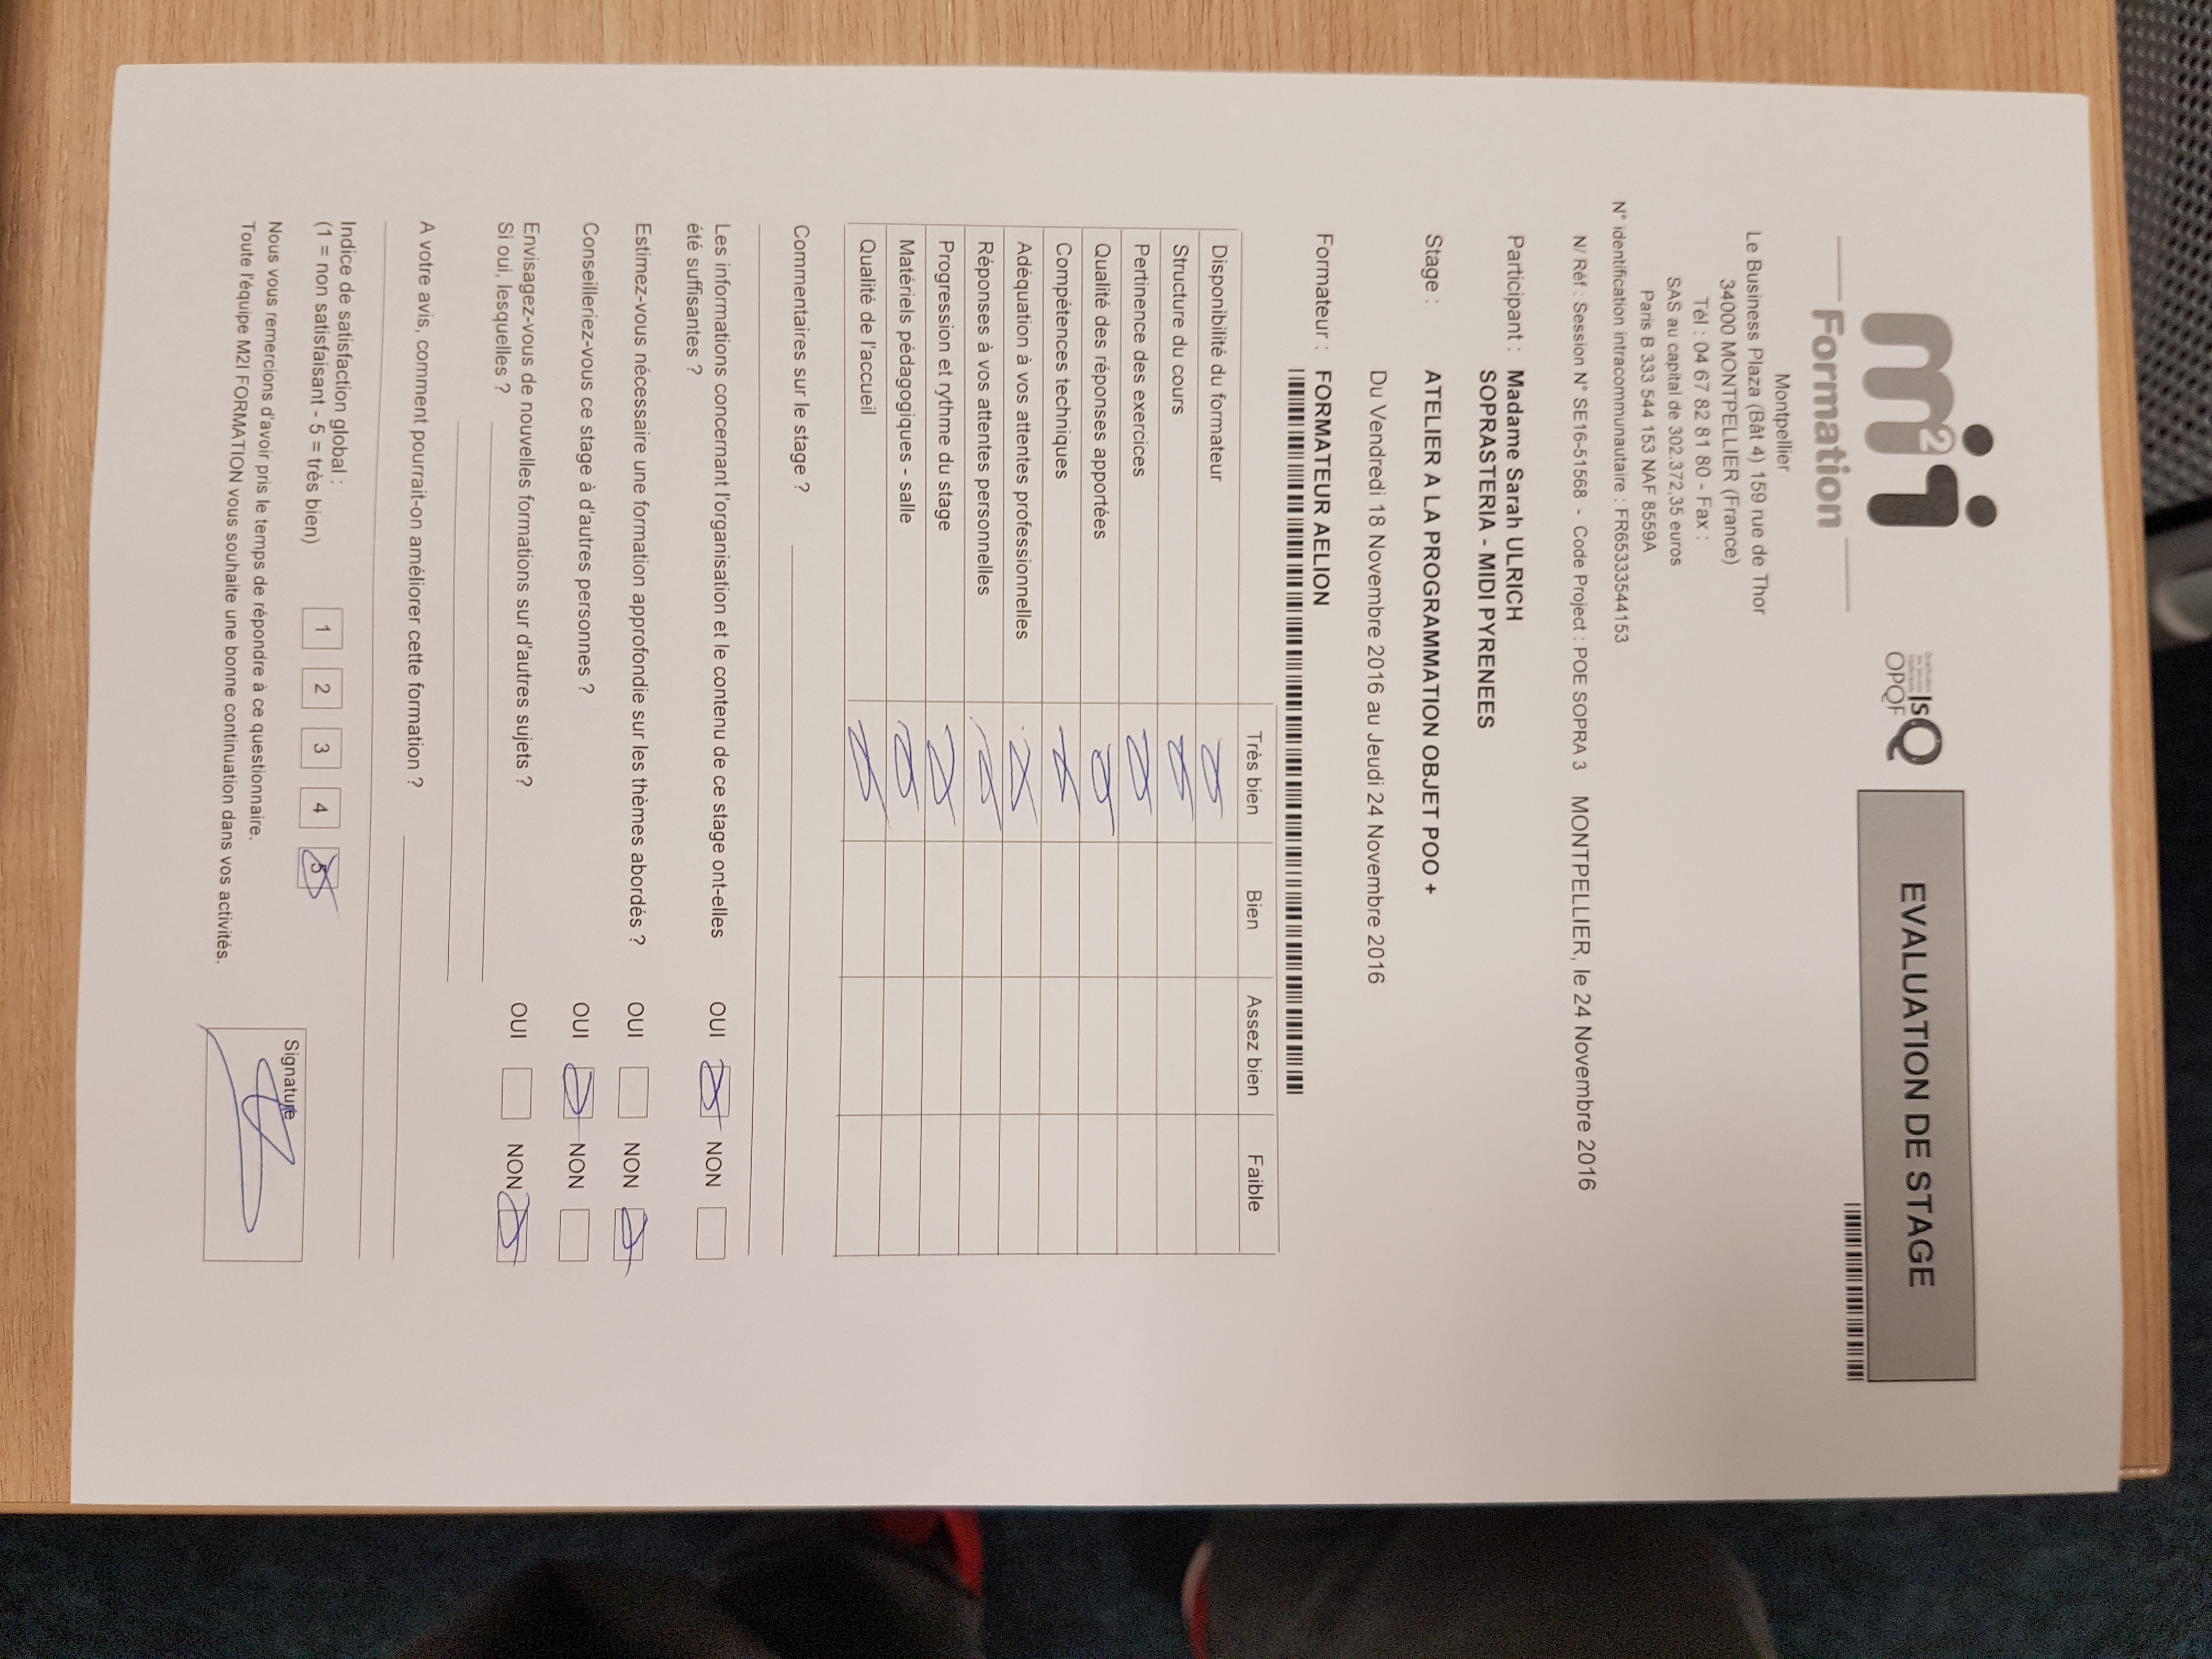 m2i
Formation
Is
OPQF
EVALUATION DE STAGE
Montpellier
Le Business Plaza (Bât 4) 159 rue de Thor
34000 MONTPELLIER (France)
Tél : 04 67 82 81 80 - Fax :
SAS au capital de 302.372,35 euros
Paris B 333 544 153 NAF 8559A
N° identification intracommunautaire : FR65333544153
N/ Réf : Session N° SE16-51568 - Code Project : POE SOPRA 3 MONTPELLIER, le 24 Novembre 2016
Participant : Madame Sarah ULRICH
SOPRASTERIA - MIDI PYRENEES
Stage : ATELIER A LA PROGRAMMATION OBJET POO +
Du Vendredi 18 Novembre 2016 au Jeudi 24 Novembre 2016
Formateur : FORMATEUR AELION
Très bien Bien Assez bien Faible
Disponibilité du formateur
Structure du cours
Pertinence des exercices
Qualité des réponses apportées
Compétences techniques
Adéquation à vos attentes professionnelles
Réponses à vos attentes personnelles
Progression et rythme du stage
Matériels pédagogiques - salle
Qualité de l'accueil
Commentaires sur le stage ?
Les informations concernant l'organisation et le contenu de ce stage ont-elles OUI NON
été suffisantes ?
Estimez-vous nécessaire une formation approfondie sur les thèmes abordés ? OUI NON
Conseilleriez-vous ce stage à d'autres personnes ? OUI NON
Envisagez-vous de nouvelles formations sur d'autres sujets ? OUI NON
Si oui, lesquelles ?
A votre avis, comment pourrait-on améliorer cette formation ?
Indice de satisfaction global :
(1 = non satisfaisant - 5 = très bien) 1 2 3 4 5
Signature
Nous vous remercions d'avoir pris le temps de répondre à ce questionnaire.
Toute l'équipe M2I FORMATION vous souhaite une bonne continuation dans vos activités.